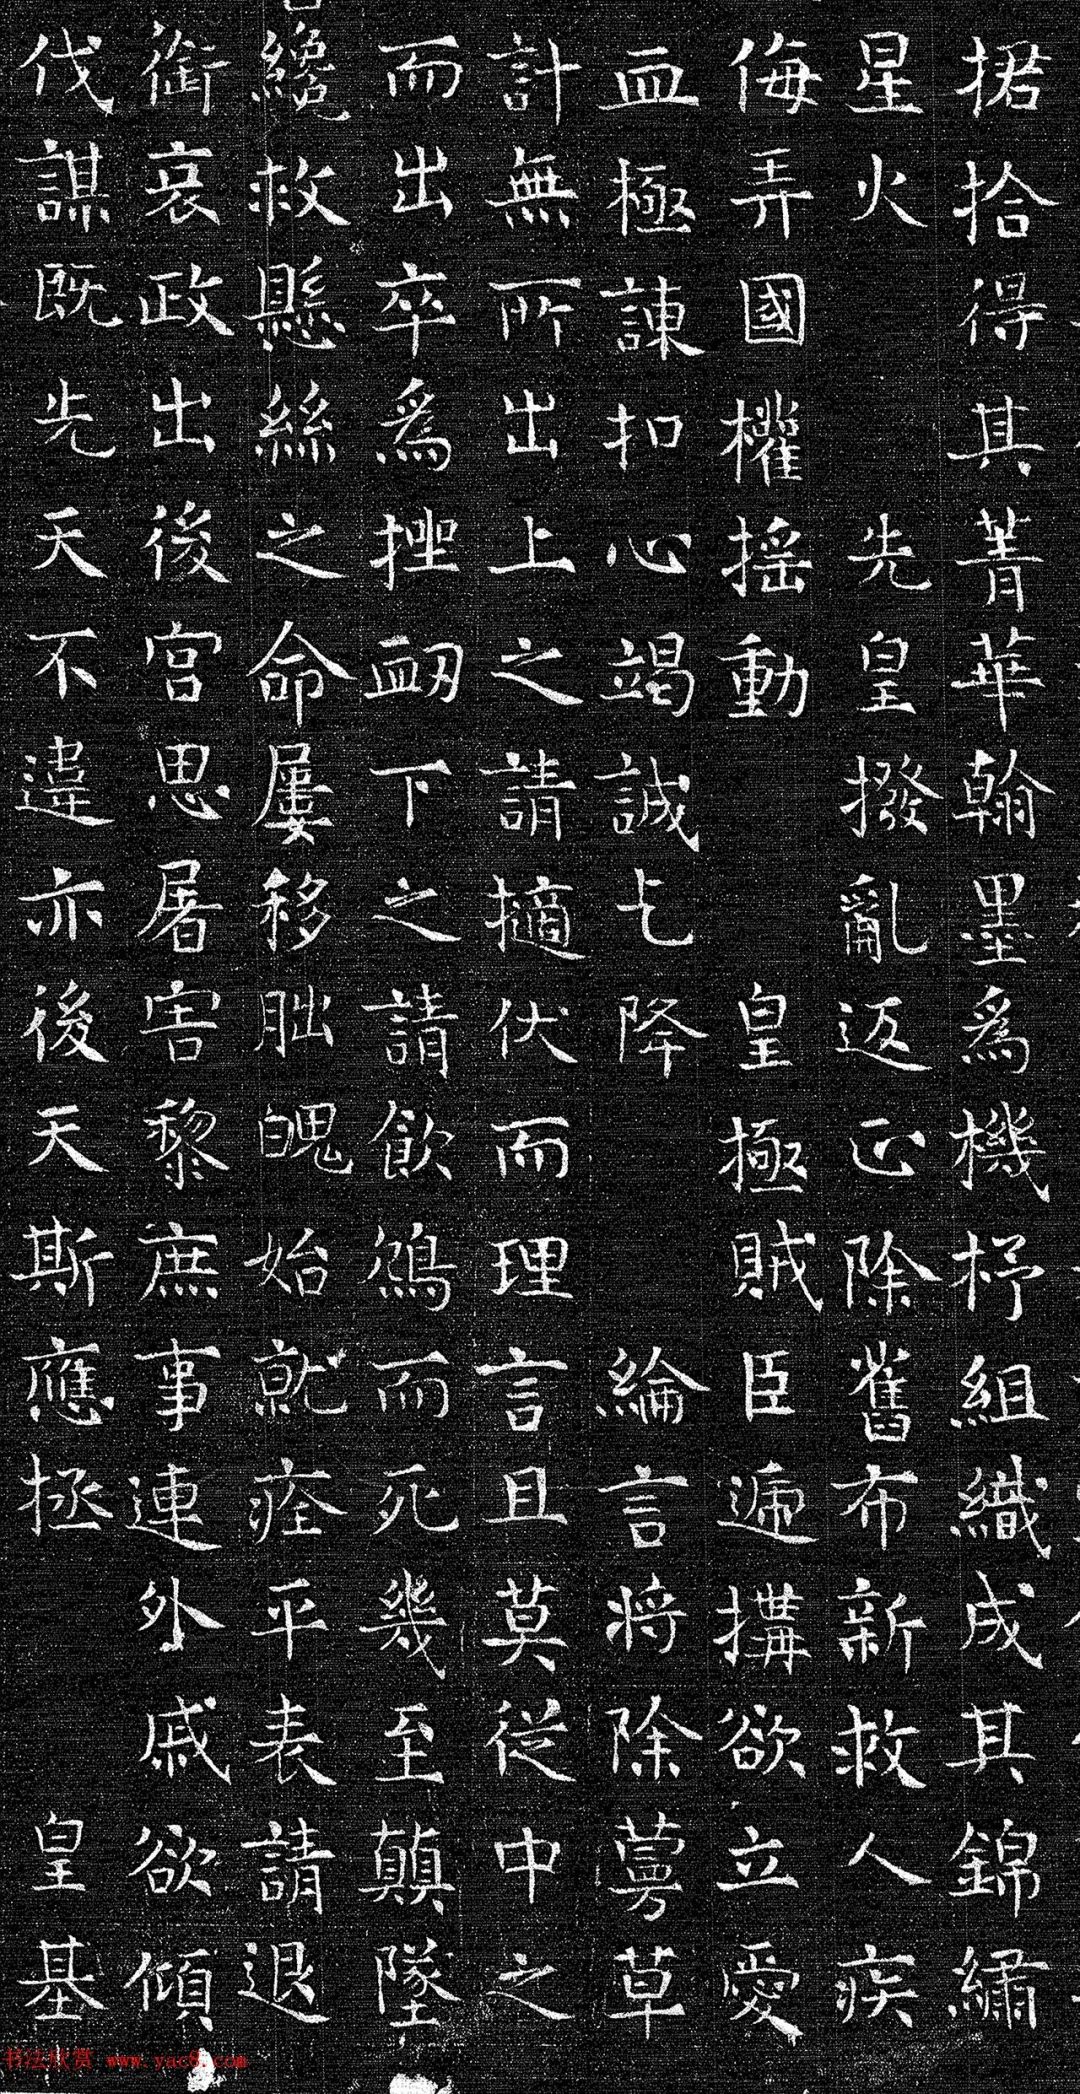 捃拾得其菁華翰墨為機杼組織成其錦繡
星火 先皇撥亂返正除舊布新救人疾
侮弄國權搖動 皇極賊臣遞搆欲立愛
血極諫扣心竭誠乞降 綸言將除蔓草
計無所出上之請擿伏而理言且莫從中之
而出卒為挫衂下之請飲鴆而死幾至顛墜
纔救懸絲之命屢移朏魄始就痊平表請退
銜哀政出後宮思屠害黎庶事連外戚欲傾
伐謀既先天不違亦後天斯應拯 皇基
书法欣赏 www.yac8.com